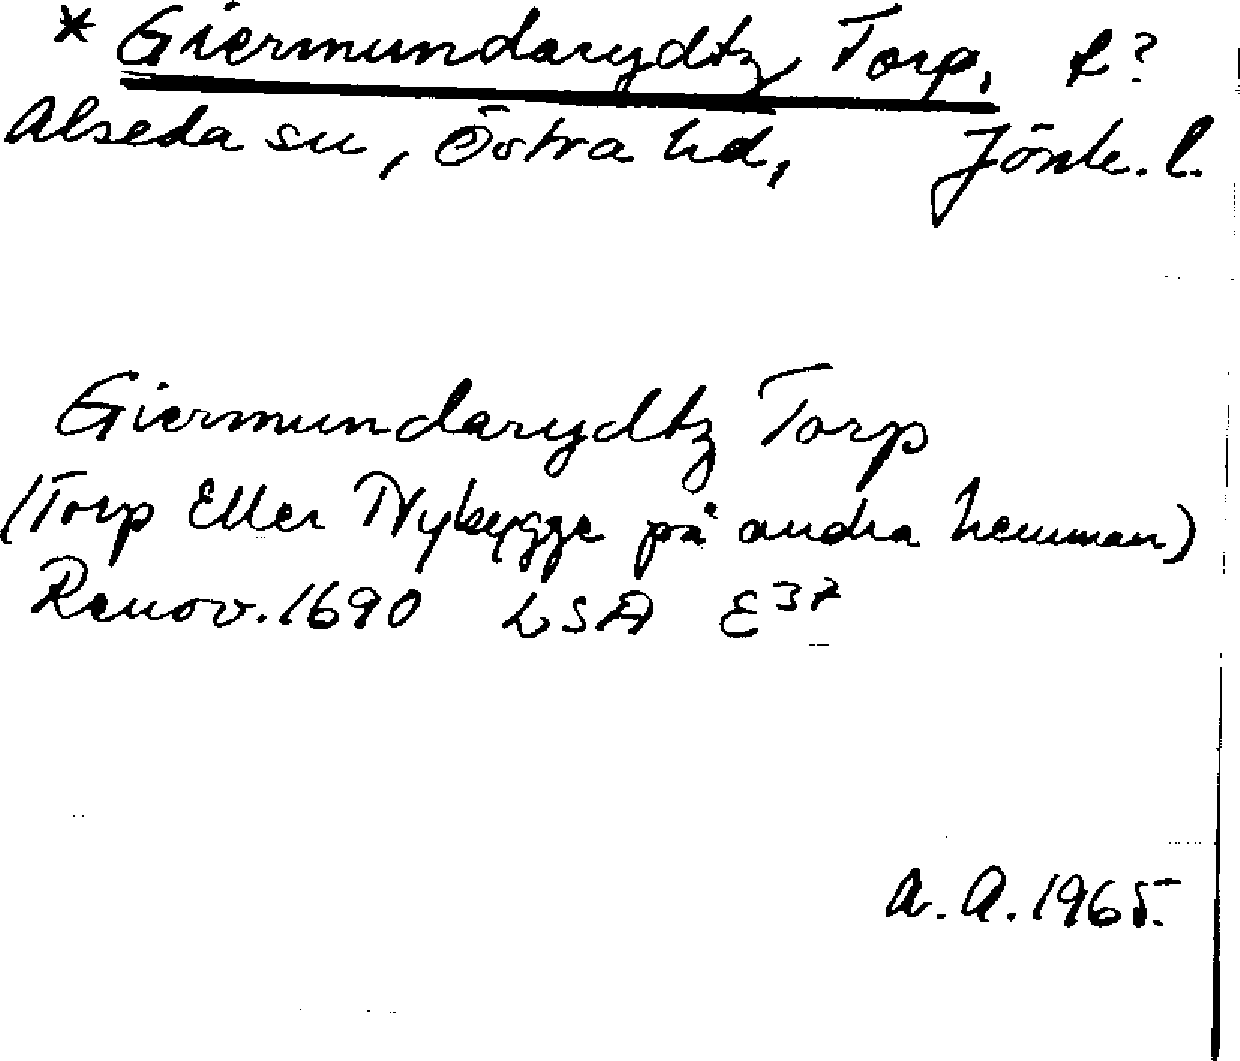 * Giermundarydtz Torp, t?
Alseda sn, Östra hd, Jönk. l.
Giermundarydtz Torp
(Torp Eller Nybygge på andra hemman)
Renov. 1690 LSA E37
A. A. 1965.